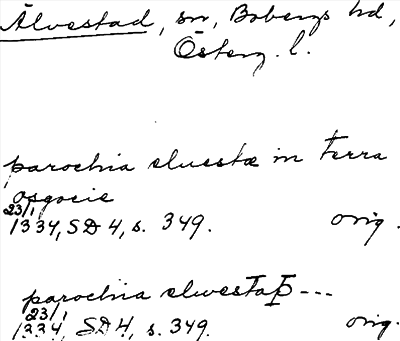 Älvestad, sn, Bobergs hd,
Österg. l.
parochia eluestæ in terra
osgocie
23/1 1334, SD 4, s. 349. orig.
parochia eluesta ---
23/1 1334, SD 4, s. 349. orig.